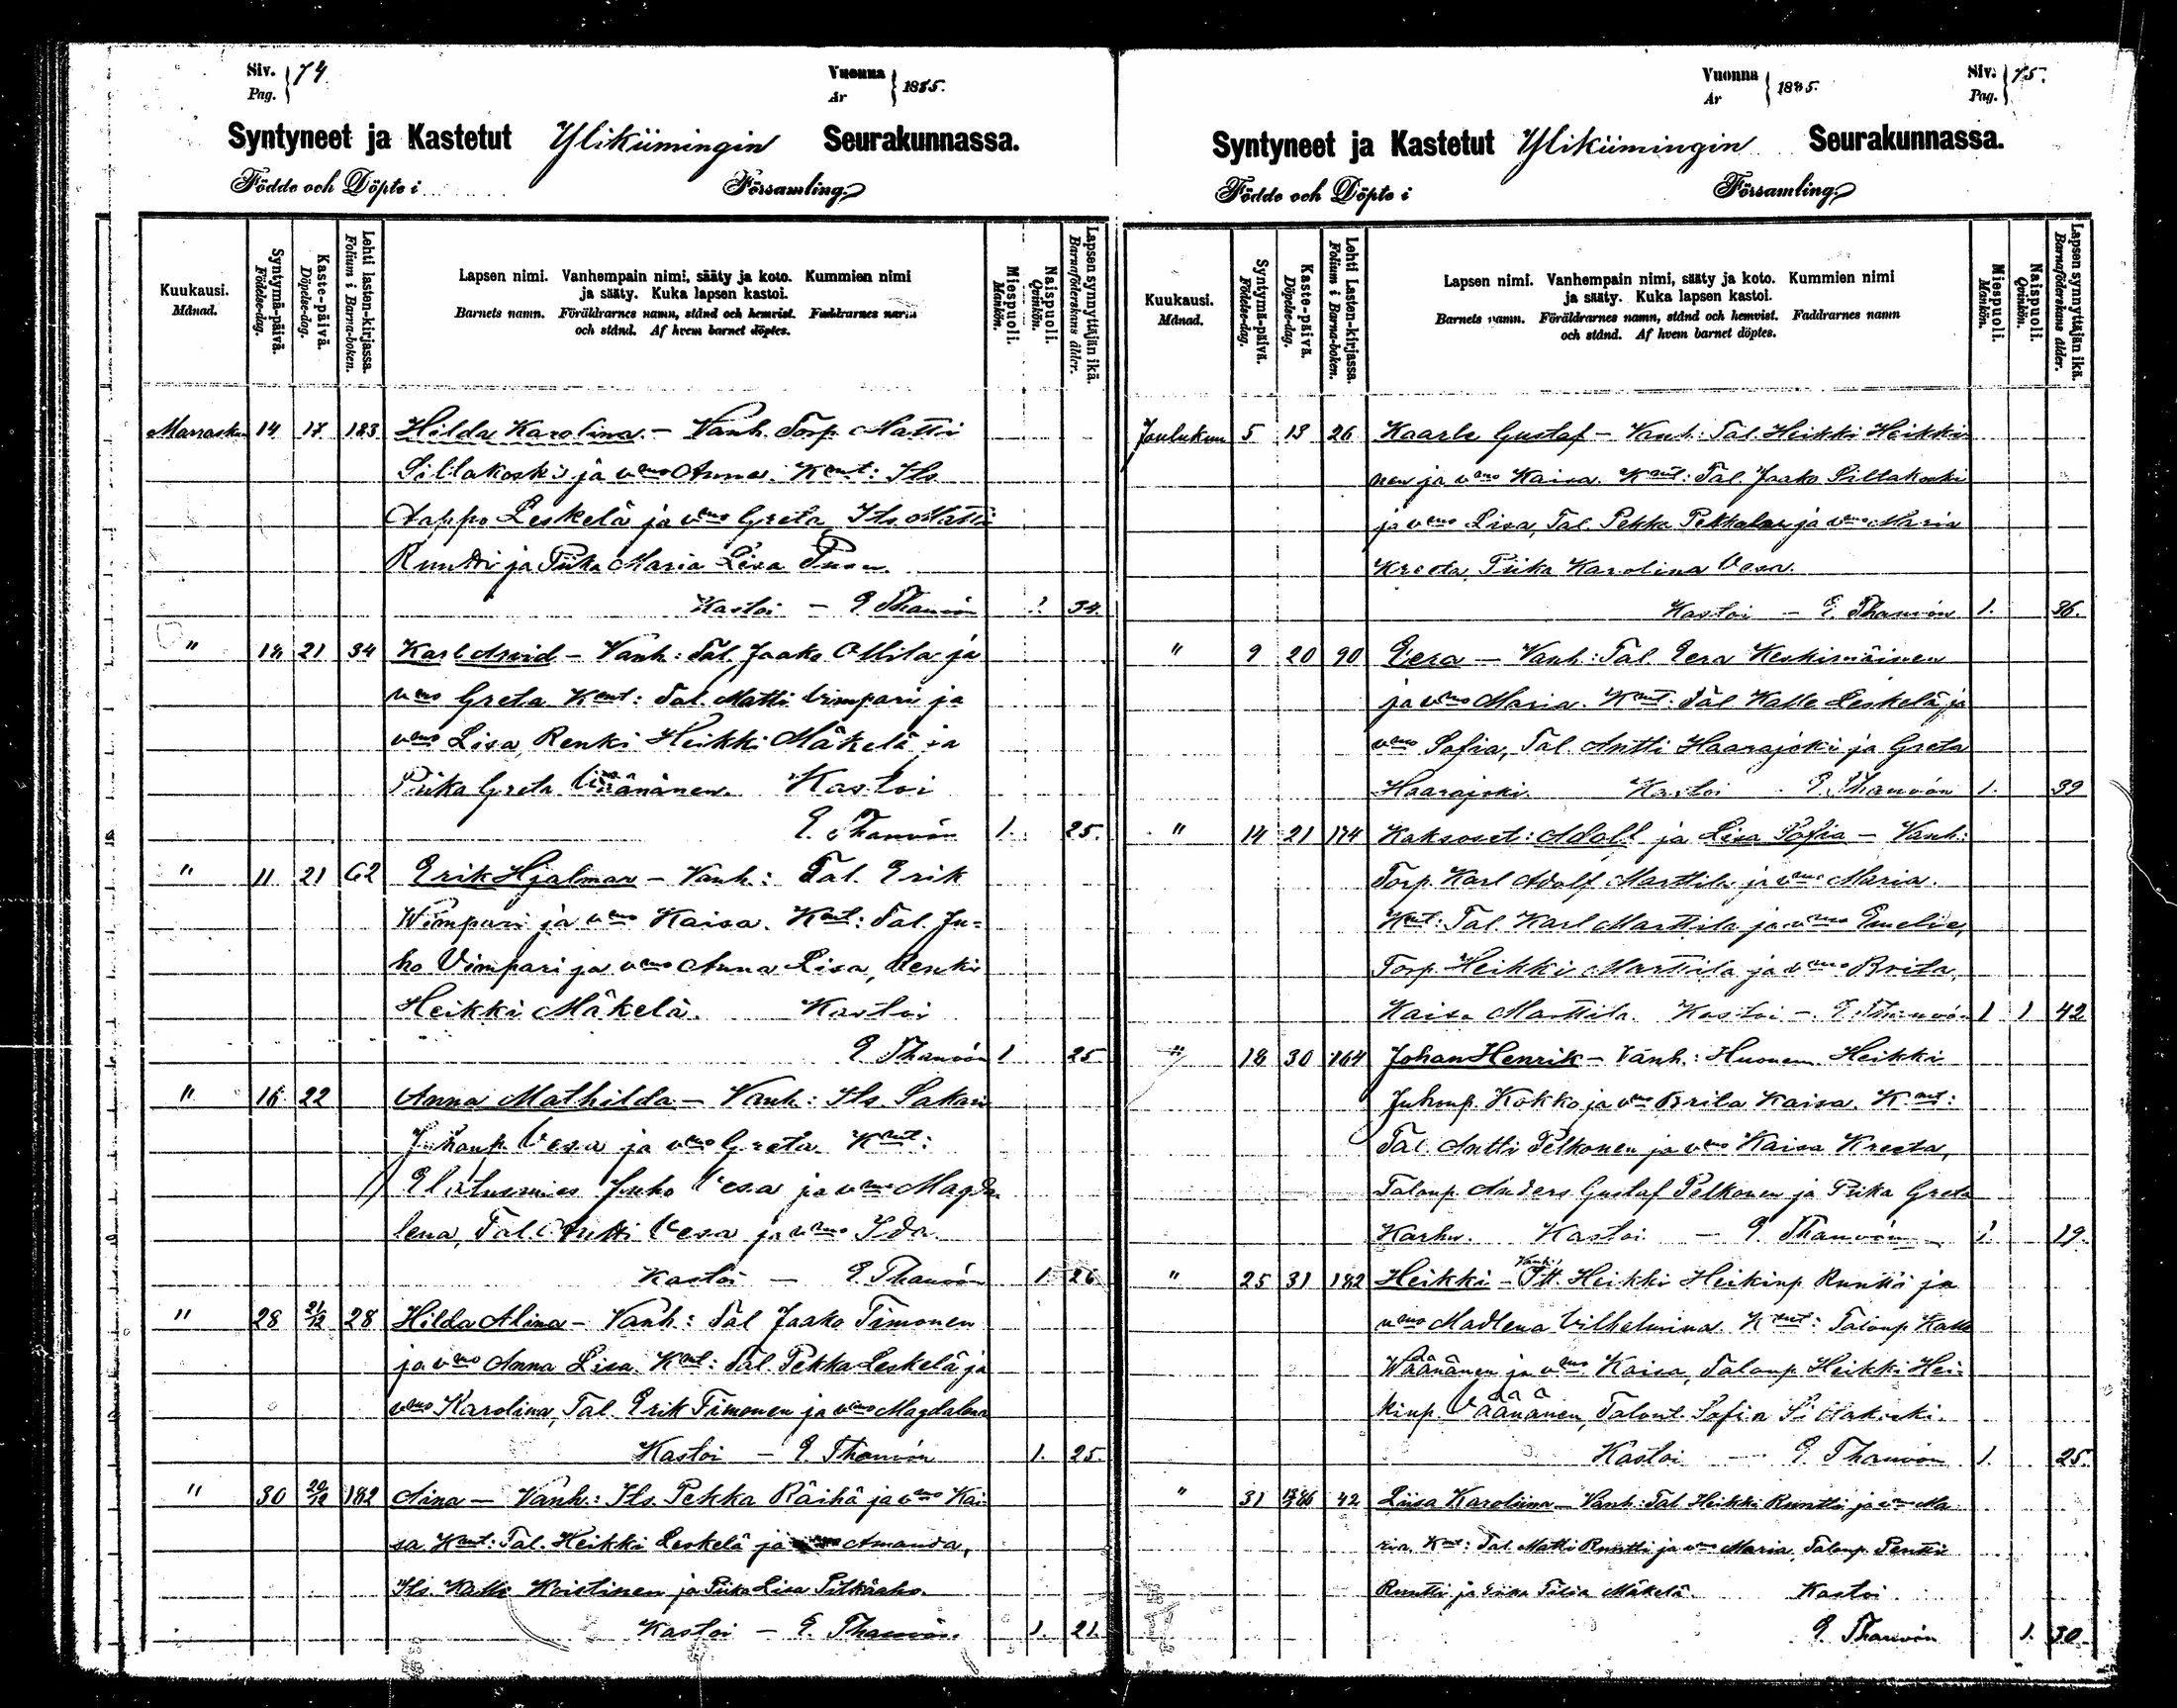 Siv. 74
Pag.
Vuonna 1885.
År
Syntyneet ja Kastetut Ylikiimingin Seurakunnassa.
Födde och Döpte i Församling.
Kuukausi.
Månad.
Syntymä-päivä.
Födelse-dag.
Kaste-päivä.
Döpelse-dag.
Lehti lasten-kirjassa.
Folium i Barna-boken.
Lapsen nimi. Vanhempain nimi, sääty ja koto. Kummien nimi
ja sääty. Kuka lapsen kastoi.
Barnets namn. Föräldrarnes namn, stånd och hemvist. Faddrarnes namn
och stånd. Af hvem barnet döptes.
Miespuoli.
Mankön.
Naispuoli.
Qvinkön.
Lapsen synnyttäjän ikä.
Barnaföderskans ålder.
Marrasku 14 17 183 Hilda Karolina. - Vanh. Torp. Matti
Sillakoski ja vmo Anna. Kmt: Its.
Aappo Leskelä ja vmo Greta, Its. Matti
Runtti ja Piika Maria Lisa
Kastoi - E. Thauvón 1 34.
" 18. 21 34 Karl Arvid - Vanh: Tal. Jaako Ollila ja
vmo Greta. Kmt: Tal. Matti Vimpari ja
vmo Lisa, Renki Heikki Mäkelä ja
Piika Greta Väänänen. Kastoi
E. Thauvón 1. 25.
" 11 21 62 Erik Hjalmar - Vanh: Tal. Erik
Wimpari ja vmo Kaisa. Kmt: Tal. Ju=
ho Vimpari ja vmo Anna Lisa, Renki
Heikki Mäkelä. Kastoi
E. Thauvón 1 25
" 16. 22 Anna Mathilda - Vanh: Its. Sakari
Juhonp. Vesa ja vmo Greta. Kmt:
Elatusmies Juho Vesa ja vmo Magda
lena, Tal. Antti Vesa ja vmo Ida.
Kastoi - E. Thauvón 1. 26
" 28 21/12 28 Hilda Alina - Vanh: Tal Jaako Timonen
ja vmo Anna Lisa. Kmt: Tal. Pekka Leskelä ja
vmo Karolina, Tal. Erik Timonen ja vmo Magdalena
Kastoi - E. Thauvón 1. 25.
" 30 20/12 182 Aina - Vanh.: Its. Pekka Räihä ja vmo Kai
sa Kmt: Tal. Heikki Leskelä ja vmo Amanda,
Its. Kalle Koistinen ja Piika Lisa Pitkäaho.
Kastoi - E. Thauvón. 1. 21.
Vuonna 1885.
År
Siv. 75.
Pag.
Syntyneet ja Kastetut Ylikiimingin Seurakunnassa.
Födde och Döpte i Församling.
Kuukausi.
Månad.
Syntymä-päivä.
Födelse-dag.
Kaste-päivä.
Döpelse-dag.
Lehti Lasten-kirjassa.
Folium i Barna-boken.
Lapsen nimi. Vanhempain nimi, sääty ja koto. Kummien nimi
ja sääty. Kuka lapsen kastoi.
Barnets namn. Föräldrarnes namn, stånd och hemvist. Faddrarnes namn
och stånd. Af hvem barnet döptes.
Miespuoli.
Mankön.
Naispuoli.
Qvinkön.
Lapsen synnyttäjän ikä.
Barnaföderskans ålder.
Joulukuu 5 13 26 Kaarle Gustaf - Vanh: Tal. Heikki Heikki
nen ja vmo Kaisa. Kmt: Tal. Jaako Sillakoski
ja vmo Lisa, Tal. Pekka Pekkalan ja vmo Maria
Kreeta, Piika Karolina Vesa.
Kastoi - E. Thauvón 1. 36.
" 9 20 90 Eera - Vanh: Tal. Eera Keskimäinen
ja vmo Maria. Kmt: Tal Kalle Leskelä ja
vmo Sofia, Tal. Antti Haarajoki ja Greta
Haarajoki. Kastoi E. Thauvón 1. 39
" 14 21 174 Kaksoset: Adolf ja Lisa Sofia - Vanh:
Torp. Karl Adolf Marttila ja vmo Maria.
Kmt: Tal. Karl Marttila ja vmo Emelie,
Torp. Heikki Marttila ja vmo Brita,
Kaisa Marttila. Kastoi - E. Thauvón 1 1 42
" 18 30 164 Johan Henrik - Vanh.: Huonem. Heikki
Juhonp. Kokko ja vmo Brita Kaisa. Kmt:
Tal. Antti Pelkonen ja vmo Kaisa Kreeta,
Talonp. Anders Gustaf Pelkonen ja Piika Greta
Karhu. Kastoi - E. Thauvón 1. 19.
" 25 31 182 Heikki - Vanh: Itl. Heikki Heikinp. Runtti ja
vmo Madlena Vilhelmina. Kmt: Talonp. Kalle
Wäänänen ja vmo Kaisa, Talonp. Heikki Hei=
kinp. Väänänen, Talont. Sofia Sillakoski.
Kastoi - E. Thauvón 1. 25.
" 31 42 Liisa Karoliina - Vanh: Tal. Heikki Runtti ja vmo Ma
ria. Kmt: Tal. Matti Runtti ja vmo Maria, Talonp. Pentti
Runtti ja Mäkelä. Kastoi
E. Thauvón 1. 30.